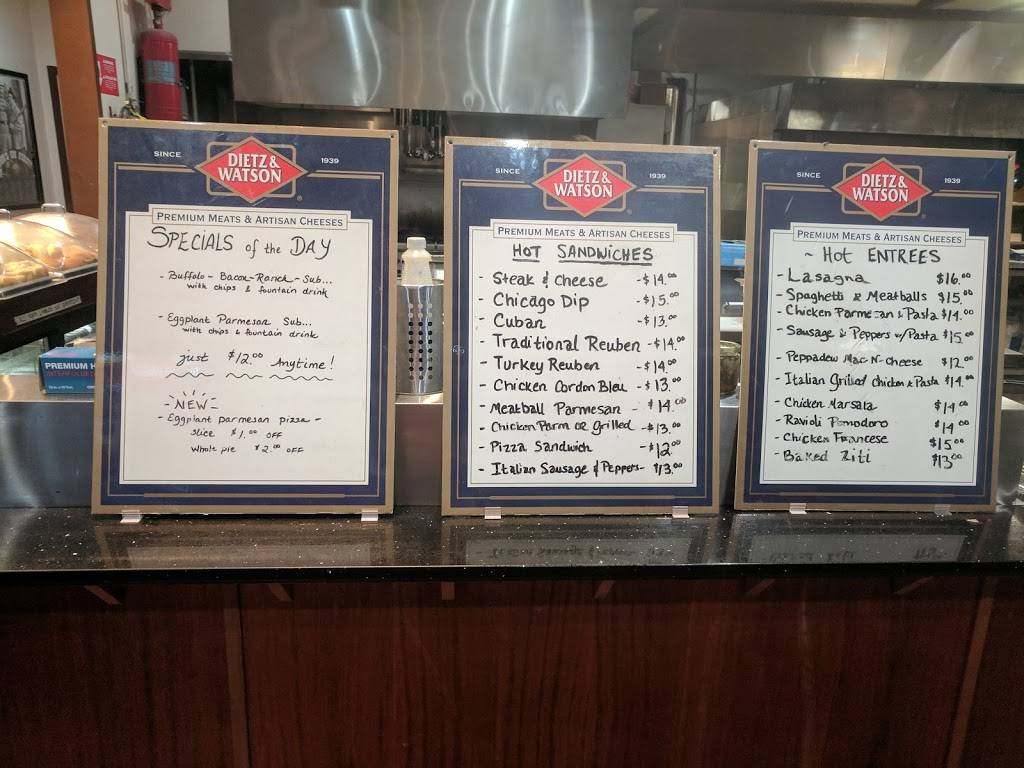 SINCE
DIETZ &
WATSON
®
1939
PREMIUM MEATS & ARTISAN CHEESES
SPECIALS of the DAY
- Buffalo - Bacon - Ranch - Sub...
with chips & fountain drink
- Eggplant Parmesan Sub...
with chips & fountain drink
just $12.00 Anytime!
- NEW -
- Eggplant parmesan pizza -
slice $1.00 OFF
whole pie $2.00 OFF
SINCE
DIETZ &
WATSON
®
1939
PREMIUM MEATS & ARTISAN CHEESES
HOT SANDWICHES
- Steak & Cheese - $14.00
- Chicago Dip - $15.00
- Cuban - $13.00
- Traditional Reuben - $14.00
- Turkey Reuben - $14.00
- Chicken Cordon Bleu - $13.00
- Meatball Parmesan - $14.00
- Chicken Parm or Grilled - $13.00
- Pizza Sandwich - $12.00
- Italian Sausage & Peppers - $13.00
SINCE
DIETZ &
WATSON
®
1939
PREMIUM MEATS & ARTISAN CHEESES
~ Hot ENTREES
- Lasagna $16.00
- Spaghetti & Meatballs $15.00
- Chicken Parmesan & Pasta $14.00
- Sausage & Peppers w/Pasta $15.00
- Peppadew Mac-N-Cheese $12.00
- Italian Grilled Chicken & Pasta $14.00
- Chicken Marsala $14.00
- Ravioli Pomodoro $14.00
- Chicken Francese $15.00
- Baked Ziti $13.00
PREMIUM